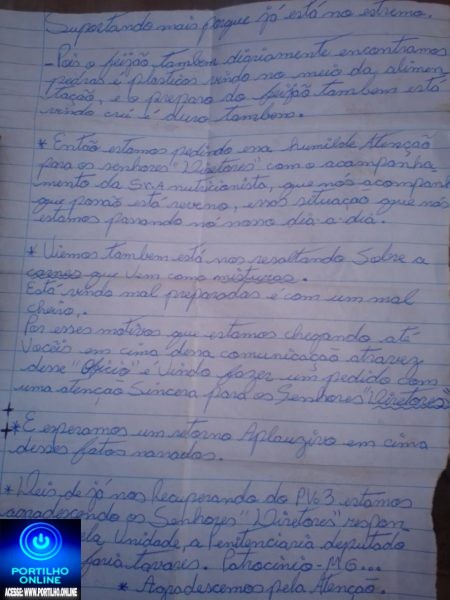 Suportando mais porque já está no estremo.
- Pois o feijão, tambem diariamente encontramos
pedras e plasticos vindo no meio da alimen
tação, e o preparo do feijão tambem está
vindo crú e duro tambem.
* Então estamos pedindo ena humilde Atenção
para os senhores "Diretores" com o acompanha-
mento da nutricionista, que nós acompanh
que está essas situaçao que nós
estamos passando nó nosso dia-a-dia.
* Viemos tambem está nos resaltando Sobre a
carnes que vem como misturas.
Está vindo mal preparadas e com um mal
cheio,.
Por esses motivos que estamos chegando até
Voceis em cima dessa comunicação atravez
desse "Oficio" e Vindo fazer um pedido com
uma atenção Sincera para os Senhores "Diretores"
* E esperamos um retorno Aplauzivo em cima
desses fatos narrados.
* Deis, de já nos Recuperando do PV.3 estamos
agradescendo os Senhores "Diretores" respon
ela Unidade, a Penitenciaria deputado
faria tavares. Patrocinio-MG...
* Agradescemos pela Atenção.
PORTILHO
ONLINE
ACESSE: WWW.PORTILHO.ONLINE